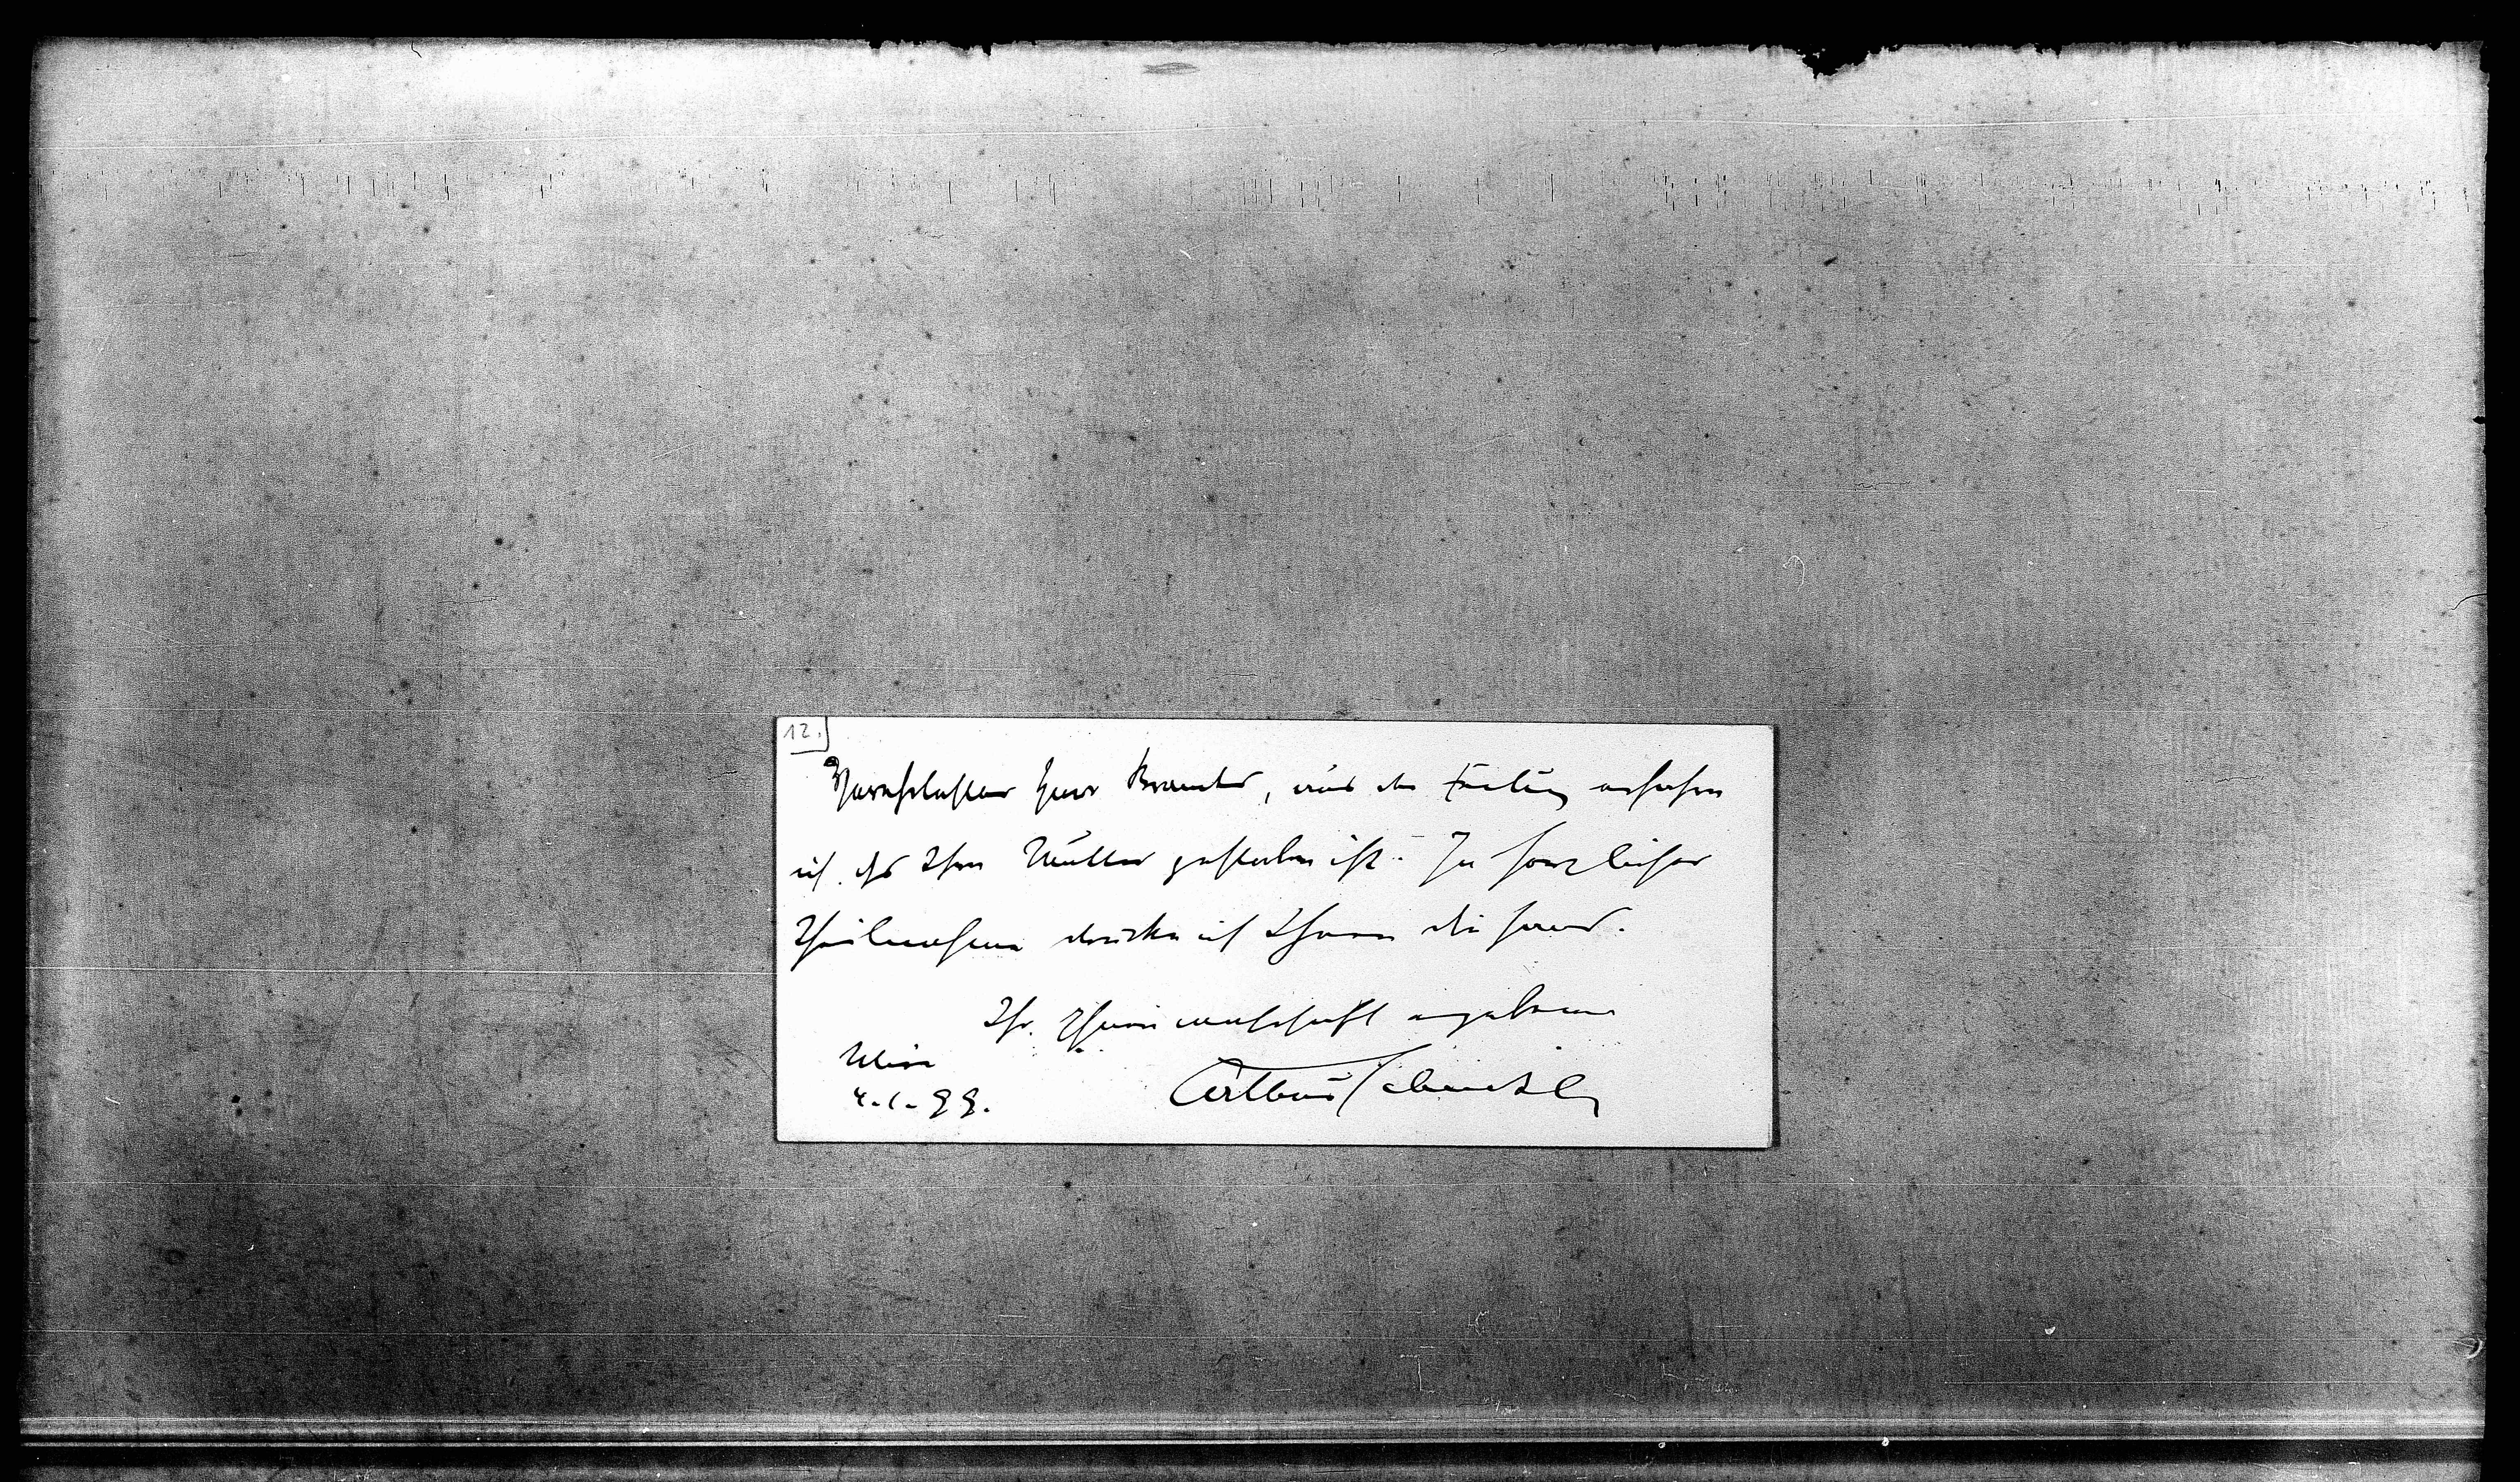 12.
Verehrtester Herr Brandes, aus der Zeitung erfahre
ich, dſs Ihre Mutter gestorben ist. In herzlicher
Theilnahme drücke ich Ihnen die Hand.
Ihr freundschaftlich ergebener
Wien
4.1.99.
Arthur Schnitzler